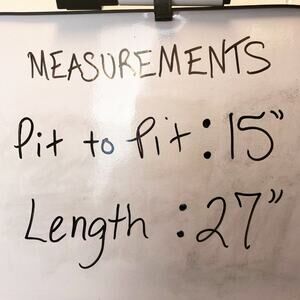 MEASUREMENTS
Pit to Pit : 15"
Length : 27"